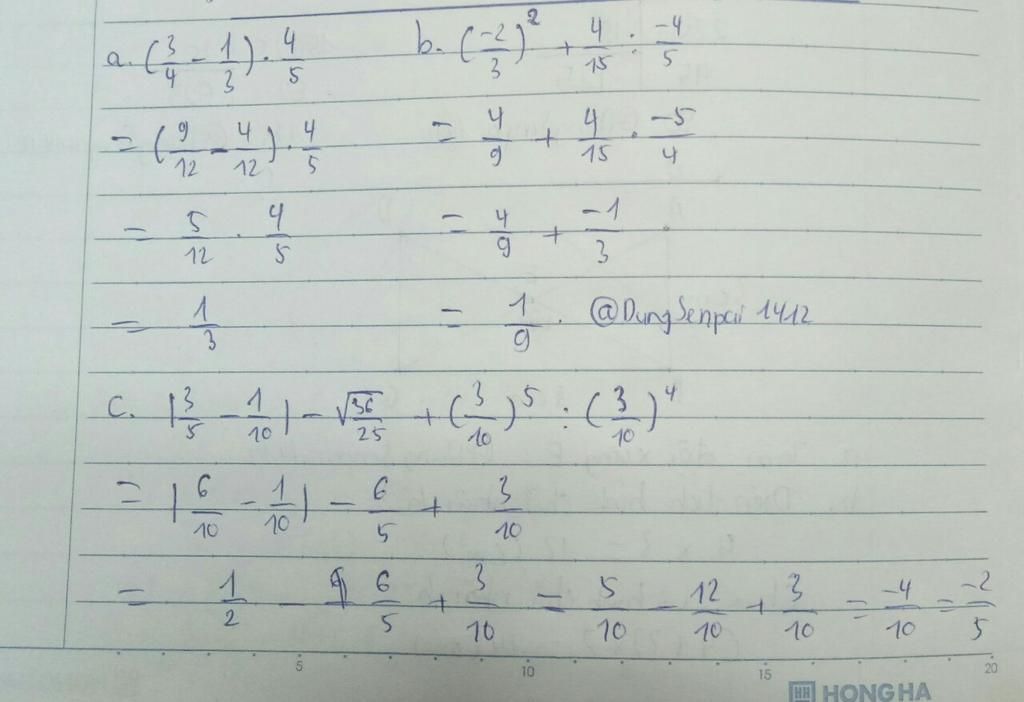 a. (3/4 - 1/3) . 4/5
= (9/12 - 4/12) . 4/5
= 5/12 . 4/5
= 1/3
b. (-2/3)² + 4/15 : -4/5
= 4/9 + 4/15 . -5/4
= 4/9 + -1/3
= 1/9 . @DungSenpai 1412
c. |3/5 - 1/10| - √36/25 + (3/10)⁵ : (3/10)⁴
= |6/10 - 1/10| - 6/5 + 3/10
= 1/2 - 6/5 + 3/10 = 5/10 - 12/10 + 3/10 = -4/10 = -2/5
5 10 15 20
HH HONG HA